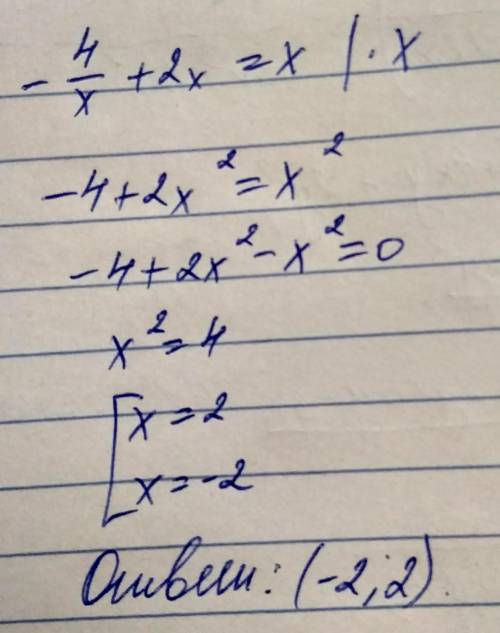 -4/x + 2x = x | · x
-4 + 2x² = x²
-4 + 2x² - x² = 0
x² = 4
[x = 2
x = -2
Ответ: (-2; 2).